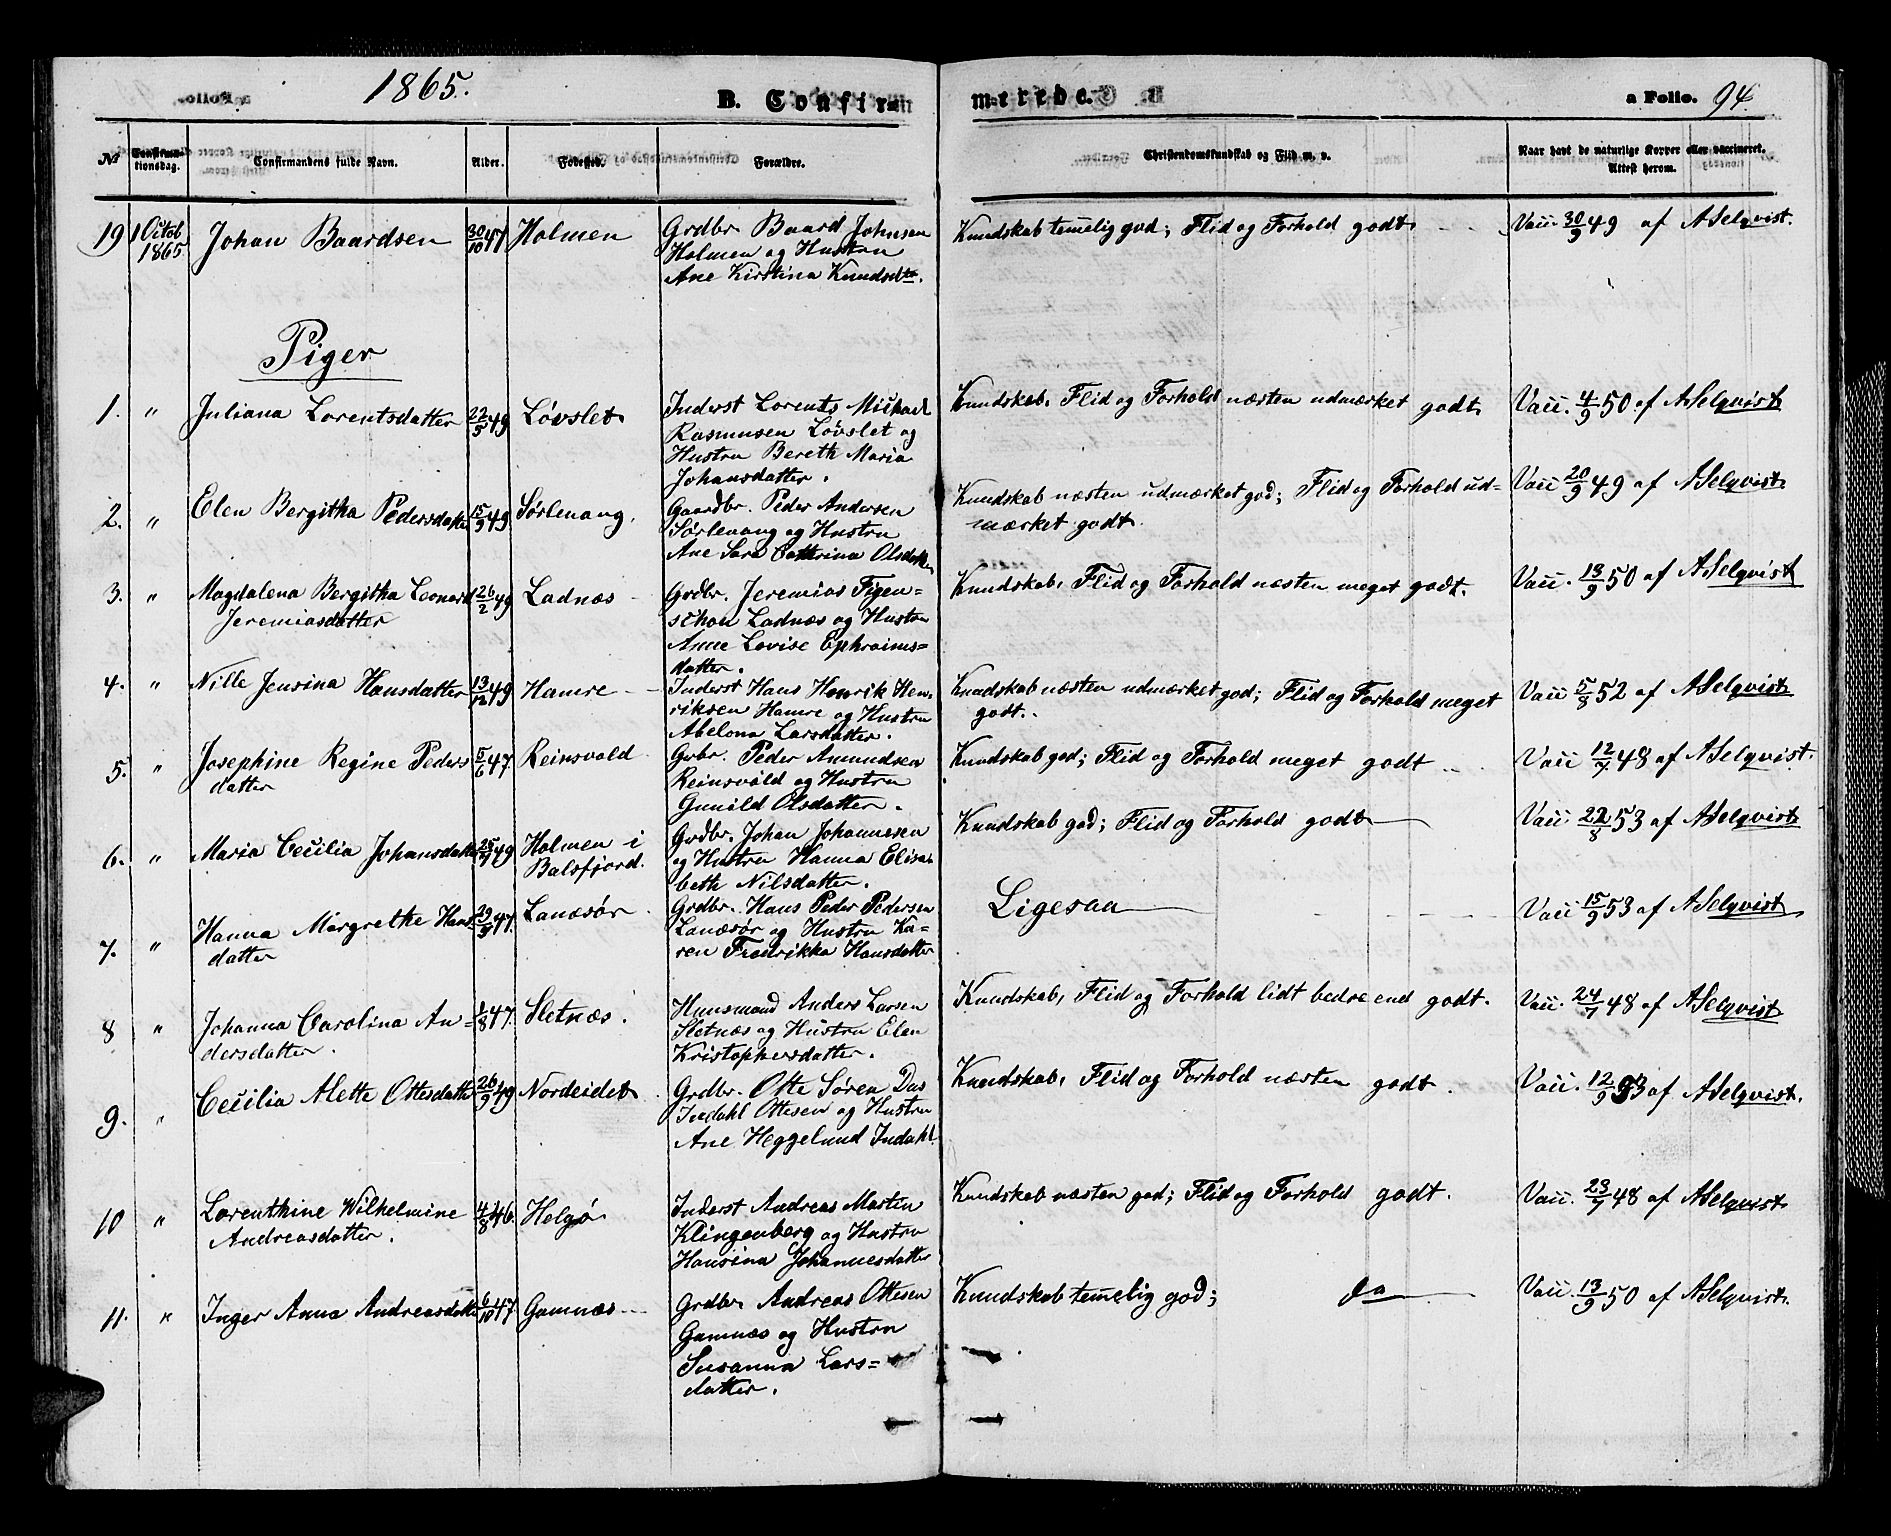 1865.
B. Confirmerede.
a Folio. 94.
No
Confirmationsdag.
Confirmandens fulde Navn.
Alder.
Fødested.
Forældre.
Christendomskundskab og Flid m. v.
Naar havt de naturlige Kopper eller vaccineret.
Attest herom.
19 1 Octob 1865 Johan Baardsen 30/10 47 Holmen
Grdbr Baard Johnsen
Holmen og Hustru
Ane Kirstina Knudsdtr.
Kundskab temelig god; Flid og Forhold godt
Vacc 30/9 49 af ASelqvist.
Piger
1. " Juliana Lorentsdatter 22/5 49 Løvslet
Inderst Lorents Michael
Rasmusen Løvslet og
Hustru Bereth Maria
Johansdatter.
Kundskab, Flid og Forhold næsten udmærket godt
Vacc. 4/9 50 af ASelqvist
2. " Elen Bergitha Pedersdatter 15/9 49. Sørlenang.
Gaardbr. Peder Andersen
Sørlenang og Hustru
Ane Sara Cathrina Olsdatter
Kundskab næsten udmærket god; Flid og Forhold ud=
mærket godt.
Vacc 20/9 49 af ASelqvist
3. " Magdalena Bergitha Leonard
Jeremiasdatter 26/2 49 Ladnæs
Grdbr. Jeremias Figen=
schou Ladnæs og Hustru
Anne Lovise Ephraims=
datter.
Kundskab, Flid og Forhold næsten meget godt.
Vacc. 13/9 50 af ASelqvist
4. " Nille Jensina Hansdatter 13/12 49 Hamre
Inderst Hans Henrik Hen=
riksen Hamre og Hustru
Abelona Larsdatter.
Kundskab næsten udmærket god; Flid og Forhold meget
godt.
Vacc 5/8 52 af ASelqvist
5. " Josephine Regine Peders
datter 5/6 47. Reinsvold
Grbr. Peder Amundsen
Reinsvold og Hustru
Gunild Olsdatter.
Kundskab god; Flid og Forhold meget godt
Vacc 12/7 48 af ASelqvist.
6. " Maria Cecilia Johansdatter 49 Holmen i
Balsfjord.
Grdbr. Johan Johannesen
og Hustru Hanna Elisa=
beth Nilsdatter.
Kundskab god; Flid og Forhold godt
Vacc 22/8 53 af ASelqvist
7. " Hanna Margrethe Hans
datter 47. Lanæsør
Grdbr. Hans Peder Pedersen
Lanæsør og Hustru Ka=
ren Fredrikka Hansdatter
Ligesaa
Vacc 15/9 53 af ASelqvist
8 " Johanna Carolina An=
dersdatter. 1/8 47. Sletnæs.
Huusmand Anders Larsen
Sletnæs og Hustru Elen
Kristophersdatter.
Kundskab, Flid og Forhold lidt bedre end godt.
Vacc. 24/7 48 af ASelqvist
9. " Cecilia Alette Ottesdatter 26/9 49 Nordeidet
Grdbr. Otte Søren Das
Indahl Ottesen og Hustru
Ane Heggelund Indahl
Kundskab, Flid og Forhold næsten godt.
Vacc. 12/9 53 af ASelqvist.
10 " Lorenthine Wilhelmine
Andreasdatter. 4/8 46. Helgø
Inderst Andreas Martin
Klingenberg og Hustru
Hansina Johannesdatter
Kundskab næsten god; Flid og Forhold godt.
Vacc. 23/7 48 af ASelqvist
11. " Inger Anna Andreasdatter 6/10 47 Gamnæs
Grdbr Andreas Ottesen
Gamnæs og Hustru
Susanna Lars=
datter.
Kundskab temelig god; do
Vacc. 13/9 50 af ASelqvist.